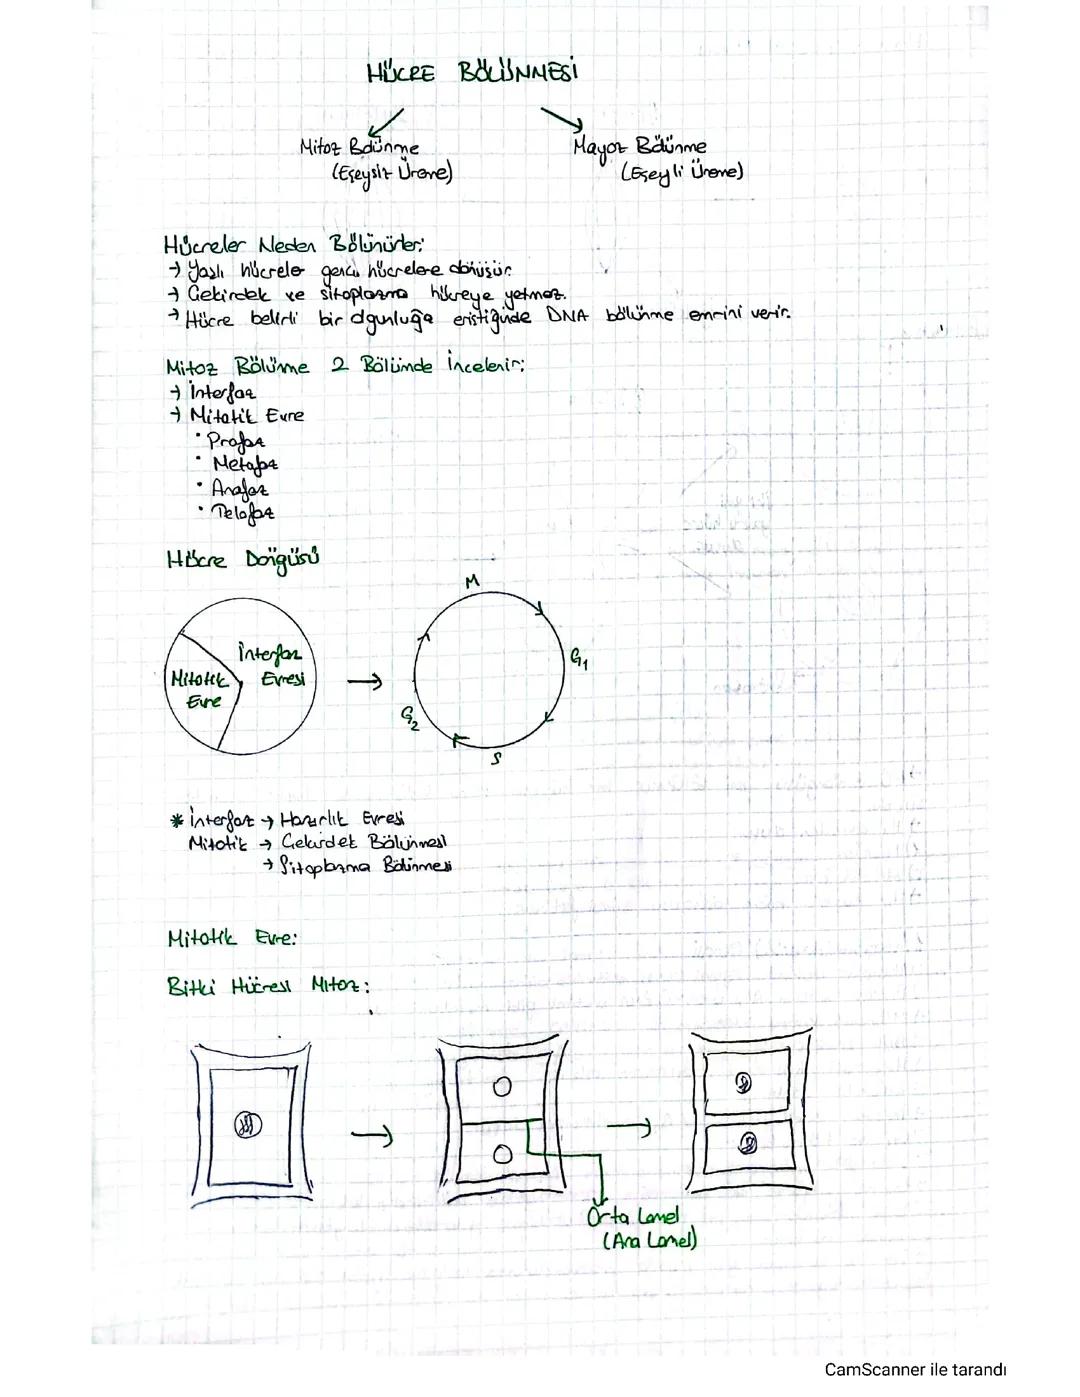 HÜCRE BÖLÜNMESİ
Mitoz Bölünme
(Eşeysiz Üreme)
Mayoz Bölünme
(Eşeyli Üreme)
Hücreler Neden Bölünürler:
→ Yaşlı hücreler genç hücrelere dönüşür.
→ Çekirdek ve sitoplazma hücreye yetmez.
→ Hücre belirli bir olgunluğa eriştiğinde DNA bölünme emrini verir.
Mitoz Bölünme 2 Bölümde İncelenir:
→ İnterfaz
→ Mitotik Evre
• Profaz
• Metafaz
• Anafaz
• Telofaz
Hücre Döngüsü
İnterfaz
Evresi
Mitotik
Evre
→
M
G₁
S
G₂
* İnterfaz → Hazırlık Evresi
Mitotik → Çekirdek Bölünmesi
→ Sitoplazma Bölünmesi
Mitotik Evre:
Bitki Hücresi Mitoz:
Orta Lamel
(Ara Lamel)
CamScanner ile tarandı